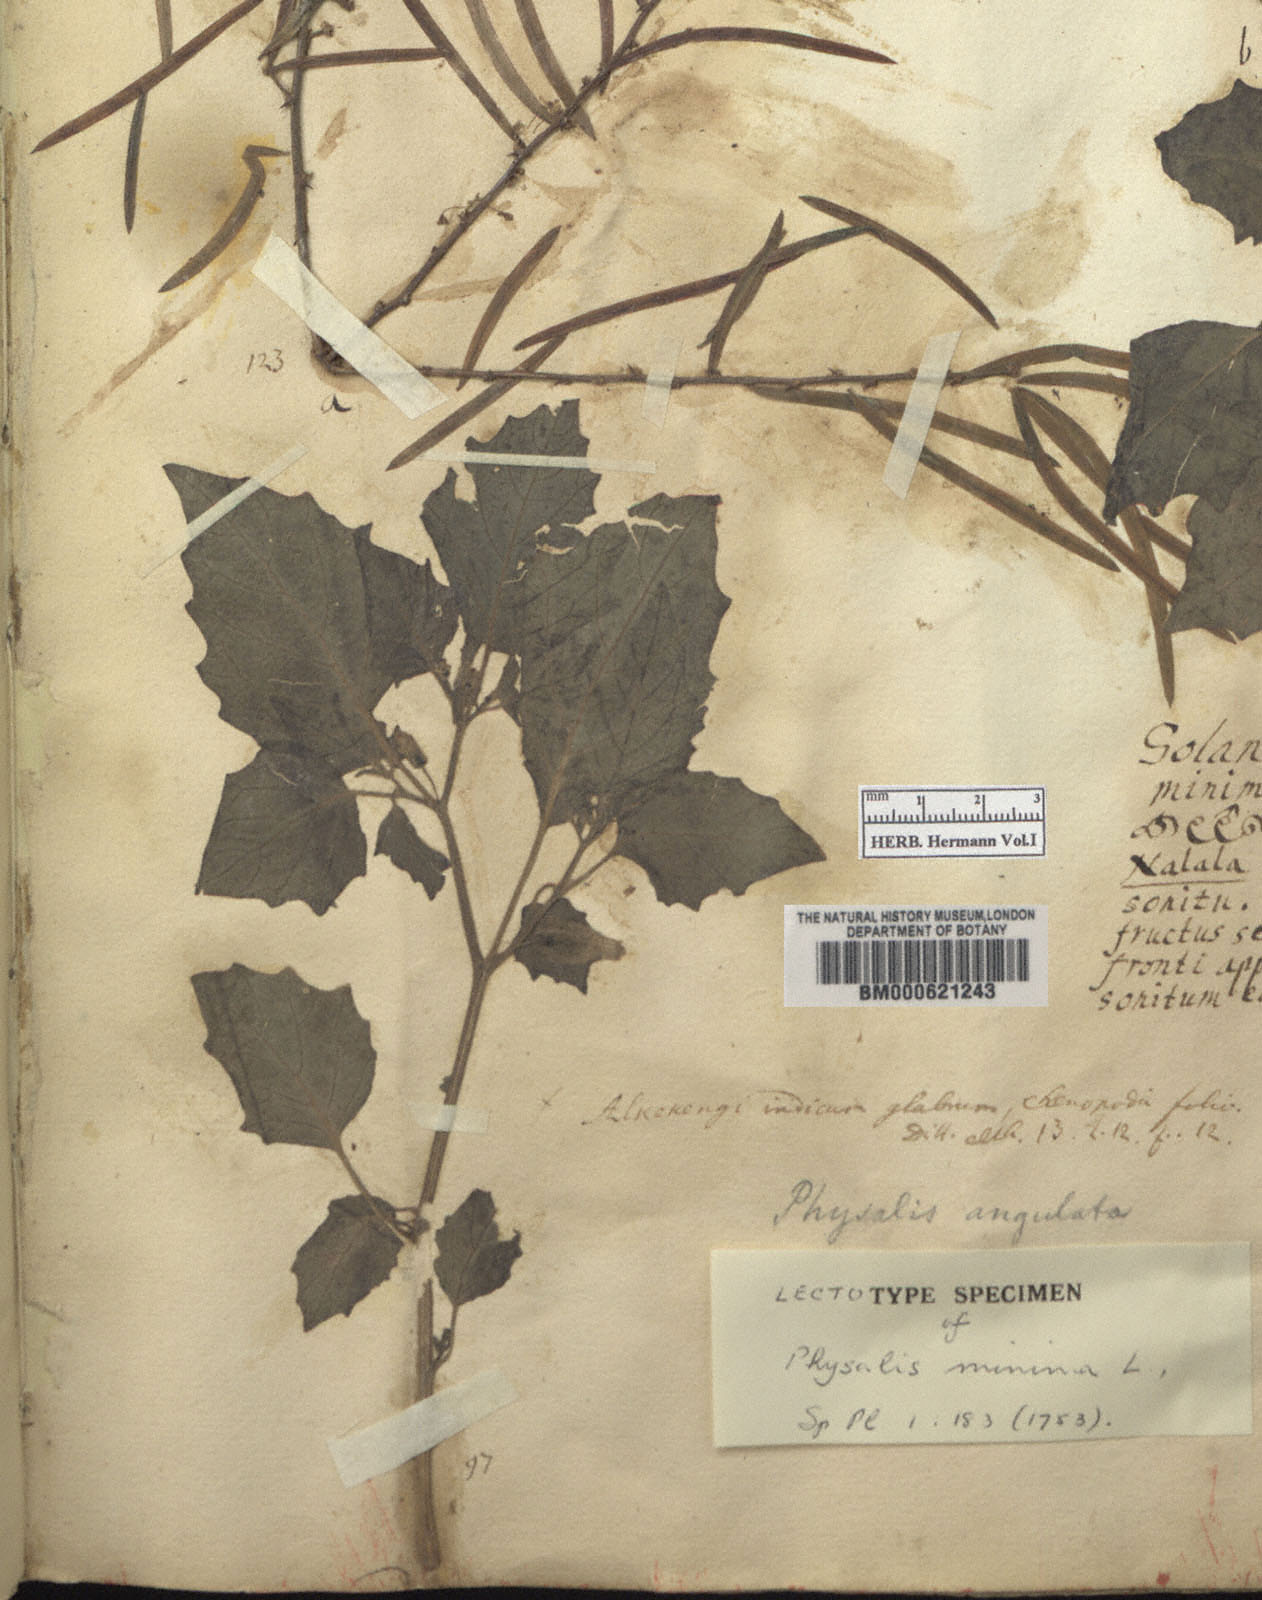 b
123
a
Solan
minim
Nalala
sonitu.
fructus se
fronti app
sonitum e
mm 1 2 3
HERB. Hermann Vol.I
THE NATURAL HISTORY MUSEUM,LONDON
DEPARTMENT OF BOTANY
BM000621243
Alkekengi indicum glabrum, chenopodii folio.
Dill. elth. 13. t. 12. f. 12.
Physalis angulata
LECTOTYPE SPECIMEN
of
Physalis minima L.,
Sp Pl 1 : 183 (1753).
97